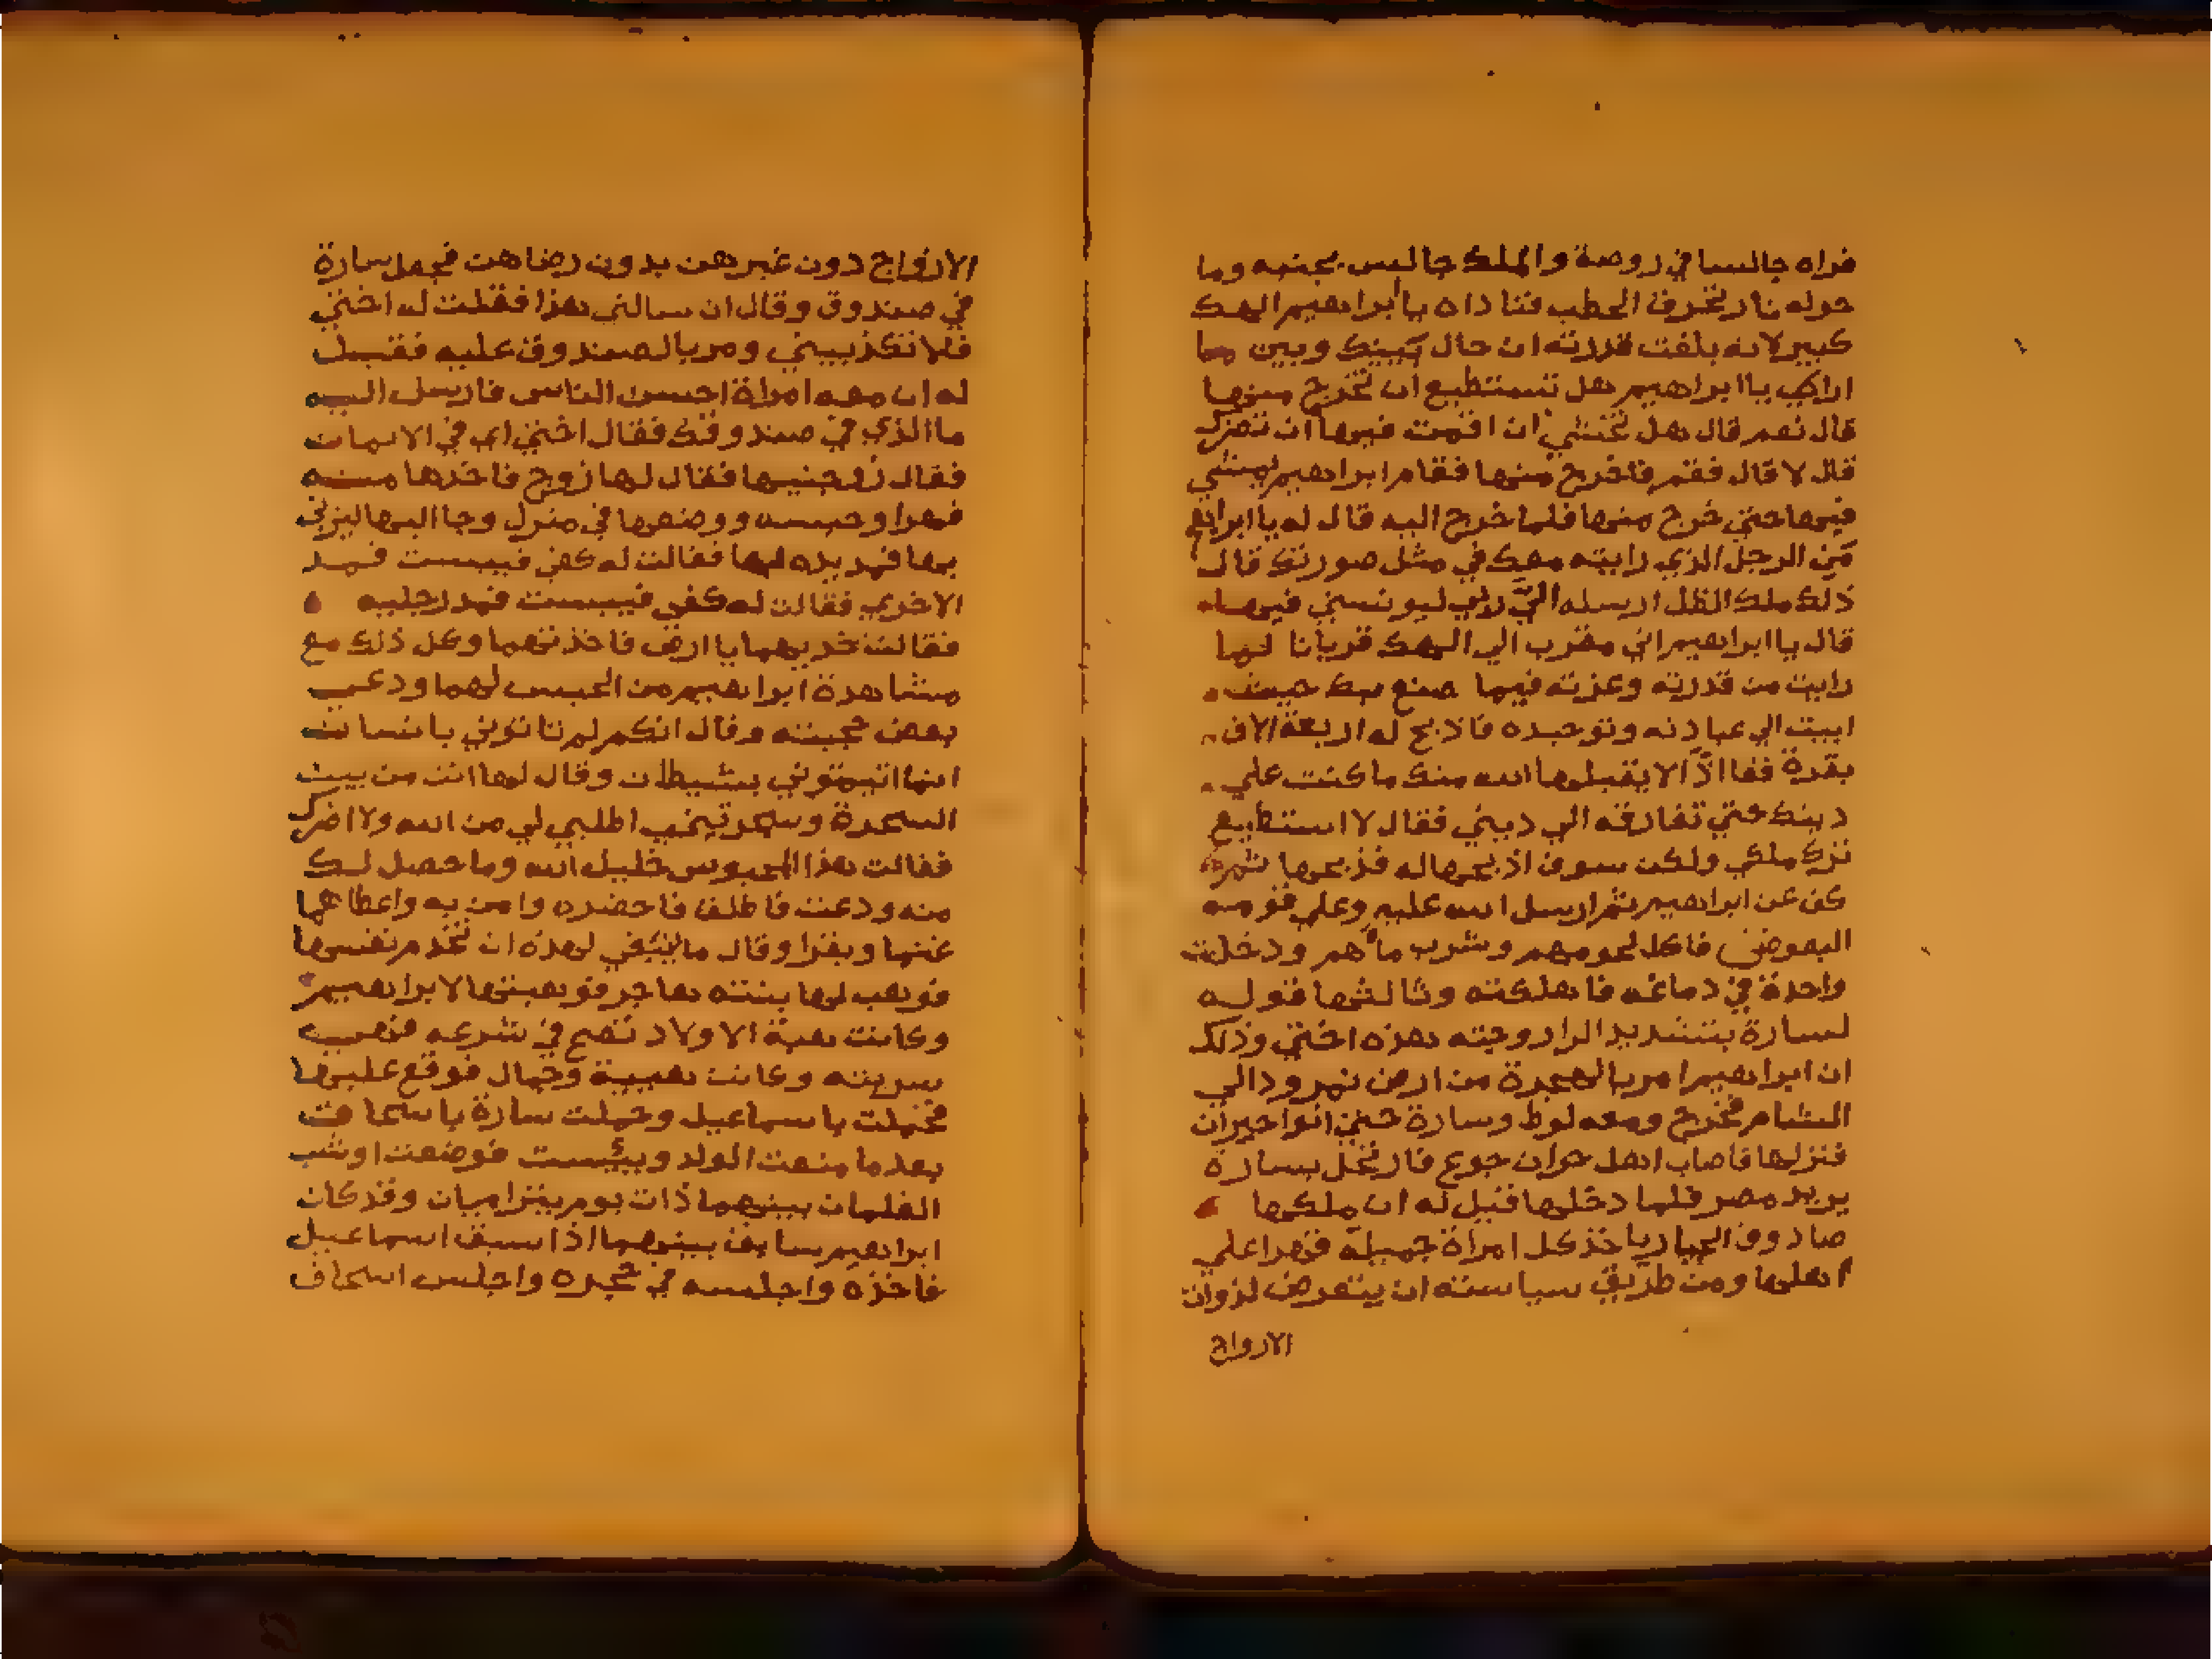 فراه جالسا في روضة والملك جالس بجنبه وما
حوله نار تحرق الحطب فناداه يا ابراهيم الهك
كبير لانه بلغت قدرته ان حال بينك وبين ما
اراك يا ابراهيم هل تستطيع ان تخرج منها
قال نعم قال هل تخشي ان اقمت فيها ان تضرك
قال لا قال فقم فاخرج منها فقام ابراهيم يمشي
فيها حتي خرج منها فلما خرج اليه قال له يا ابراهيم
من الرجل الذي رايته معك في مثل صورتك قال
ذلك ملك الظل ارسله الي ربي ليونسني فيها
قال يا ابراهيم اني مقرب الي الهك قربانا لما
رايت من قدرته وعزته فيما صنع بك حيث
ابيت الي عبادته وتوحيده فاذبح له اربعة الاف
بقرة فقا اذا لا يقبلها الله منك ما كنت علي
دينك حتي تفارقه الي ديني فقال لا استطيع
ترك ملكي ولكن سوف اذبحها له فذبحها ثم
كف عن ابراهيم ثم ارسل الله عليه وعلي قومه
البعوض فاكل لحومهم وشرب ماهم ودخلت
واحدة في دماغه فاهلكته وثالثها قوله
لسارة بتشديد الرا زوجته هذه اختي وذلك
ان ابراهيم امر بالهجرة من ارض نمرود الي
الشام فخرج ومعه لوط وسارة حتي اتوا حيران
فنزلها فاصاب اهل حران جوع فارتحل بسارة
يريد مصر فلما دخلها قيل له ان ملكها
صادوف الجبار ياخذ كل امراة جميلة قهرا علي
اهلها ومن طريق سياسته ان يتعرض لذوات
الازواج
الازواج دون غيرهن بدون رضاهن فجعل سارة
في صندوق وقال ان سالني هذا فقلت له اختي
فلا تكذبيني ومر بالصندوق عليه فقيل
له ان معه امراة احسن الناس فارسل اليه
ما الذي في صندوقك فقال اختي اي في الايمان
فقال زوجنيها فقال لها زوج فاخذها منه
قهرا وحبسه ووضعها في منزل وجا اليها ليزني
بها فمد يده لها فقالت له كفي فيبست فمد
الاخري فقالت له كفي فيبست فمد رجليه
فقالت خديهما يا ارض فاخذتهما وكل ذلك مع
مشاهدة ابراهيم من الحبس لهما ودعي
بعض حجبته وقال انكم لم تاتوني بانسان
انما اتيتموني بشيطان وقال لها انت من بيت
السحرة وسحرتيني اطلبي لي من الله ولا اضرك
فقالت هذا المحبوس خليل الله وما حصل لك
منه ودعت فاطلق فاحضره وامن به واعطاهما
غنما وبقرا وقال ما ينبغي لهذه ان تخدم نفسها
فوهب لها بنته هاجر فوهبتها لابراهيم
وكانت هبة الاولاد تصح في شرعه فهي
سريته وكانت بهيبة وجمال فوقع عليها
فحملت باسماعيل وحملت سارة باسحاق
بعد ما منعت الولد ويئست فوضعت وشب
الغلمان بينهما ذات يوم يتراميان وقد كان
ابراهيم سابق بينهما اذا سبق اسماعيل
فاخذه واجلسه في حجره واجلس اسحاق